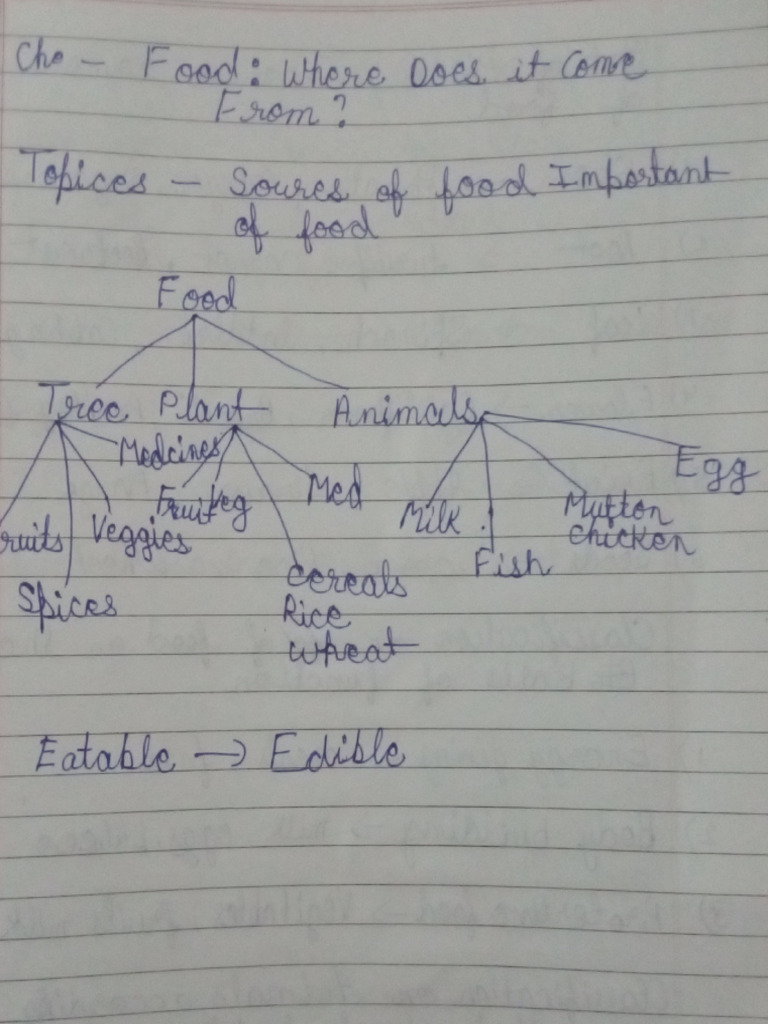 Cho - Food: Where Does it Come
From?
Topices - Soures of food Important
of food
Food
Tree Plant Animals
Medcines
Egg
Fruit Veg Med
ruits Veggies Milk Mutton
chicken
Fish
Spices cereals
Rice
wheat
Eatable → Edible